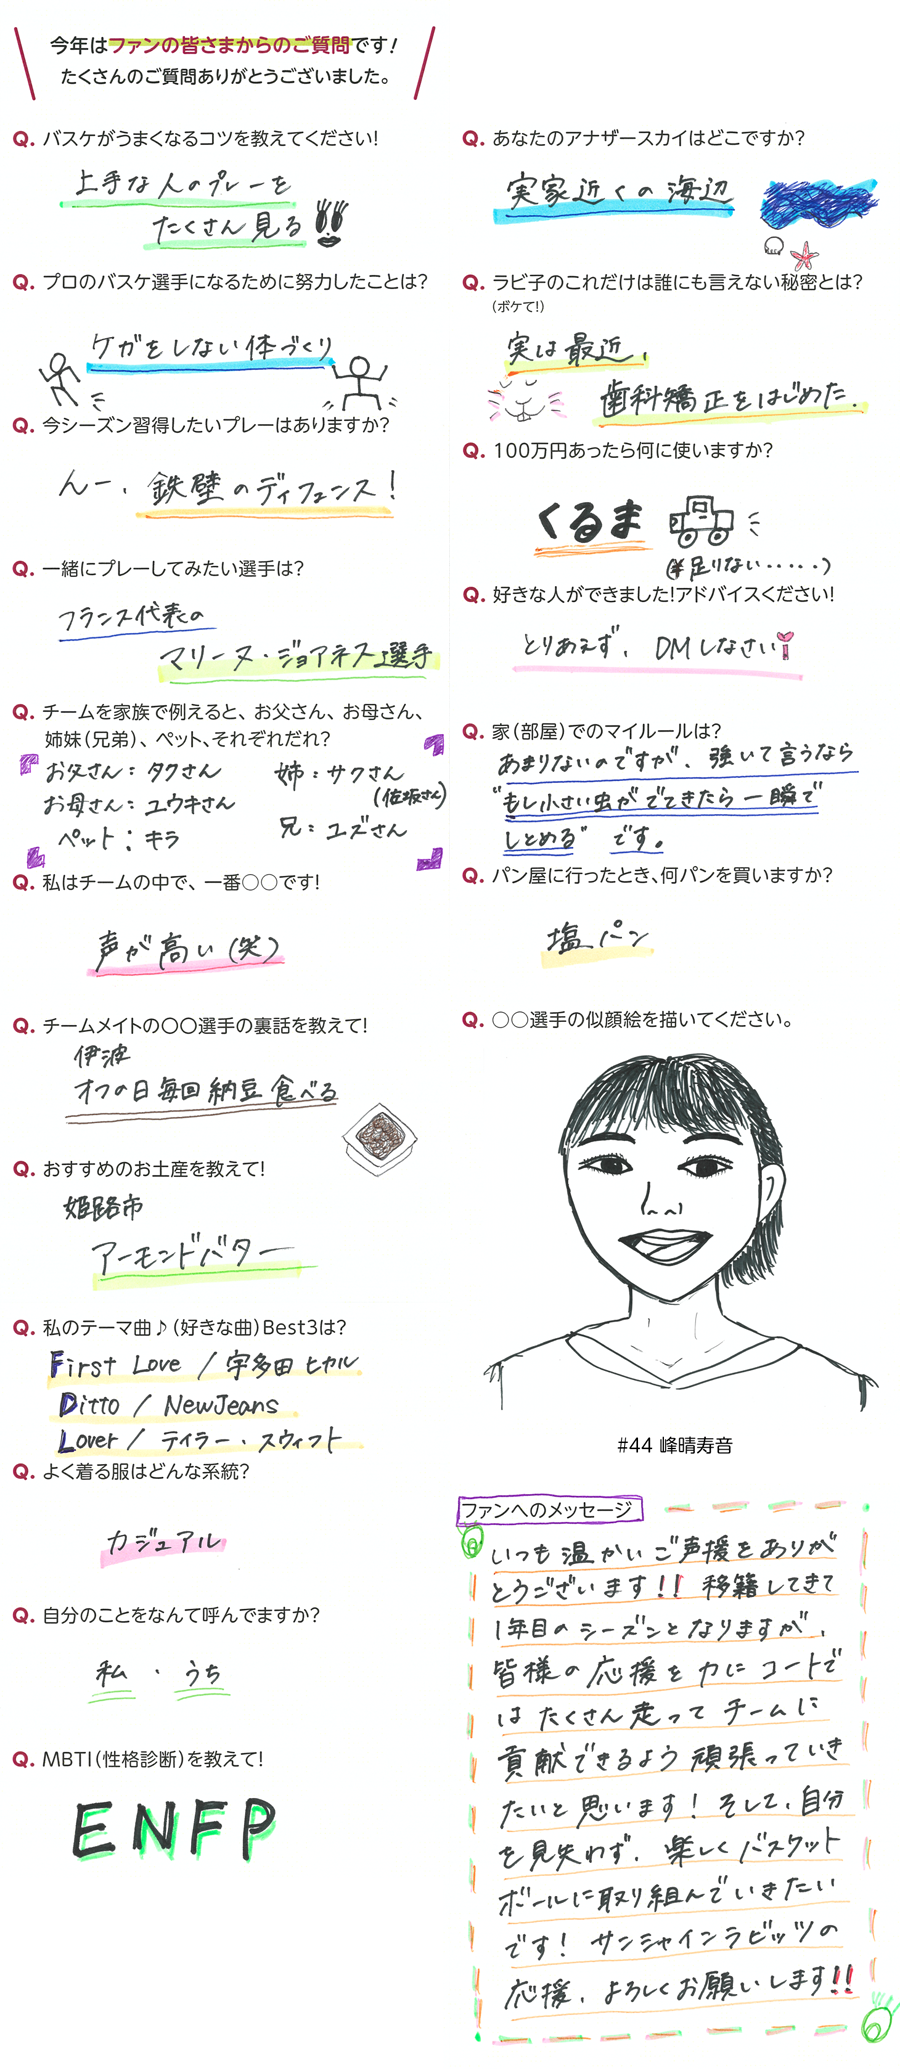 今年はファンの皆さまからのご質問です!
たくさんのご質問ありがとうございました。
Q. バスケがうまくなるコツを教えてください!
上手な人のプレーを
たくさん見る
Q. プロのバスケ選手になるために努力したことは?
ケガをしない体づくり
Q. 今シーズン習得したいプレーはありますか?
んー、鉄壁のディフェンス!
Q. 一緒にプレーしてみたい選手は?
フランス代表の
マリーヌ・ジョアネス選手
Q. チームを家族で例えると、お父さん、お母さん、
姉妹(兄弟)、ペット、それぞれだれ?
お父さん:タクさん 姉:サクさん
(佐坂さん)
お母さん:ユウキさん
ペット:キラ 兄:ユズさん
Q. 私はチームの中で、一番○○です!
声が高い(笑)
Q. チームメイトの〇〇選手の裏話を教えて!
伊波
オフの日毎回納豆食べる
Q. おすすめのお土産を教えて!
姫路市
アーモンドバター
Q. 私のテーマ曲♪(好きな曲)Best3は?
First Love / 宇多田ヒカル
Ditto / NewJeans
Lover / テイラー・スウィフト
Q. よく着る服はどんな系統?
カジュアル
Q. 自分のことをなんて呼んでますか?
私・うち
Q. MBTI(性格診断)を教えて!
ENFP
Q. あなたのアナザースカイはどこですか?
実家近くの海辺
Q. ラビ子のこれだけは誰にも言えない秘密とは?
(ボケて!)
実は最近、
歯科矯正をはじめた.
Q. 100万円あったら何に使いますか?
くるま
(¥足りない.....)
Q. 好きな人ができました!アドバイスください!
とりあえず、DMしなさい
Q. 家(部屋)でのマイルールは?
あまりないのですが、強いて言うなら
"もし小さい虫がでてきたら一瞬で
しとめる" です。
Q. パン屋に行ったとき、何パンを買いますか?
塩パン
Q. ○○選手の似顔絵を描いてください。
#44 峰晴寿音
ファンへのメッセージ
いつも温かいご声援をありが
とうございます!! 移籍してきて
1年目のシーズンとなりますが、
皆様の応援を力にコートで
はたくさん走ってチームに
貢献できるよう頑張っていき
たいと思います! そして、自分
を見失わず、楽しくバスケット
ボールに取り組んでいきたい
です! サンシャインラビッツの
応援、よろしくお願いします!!